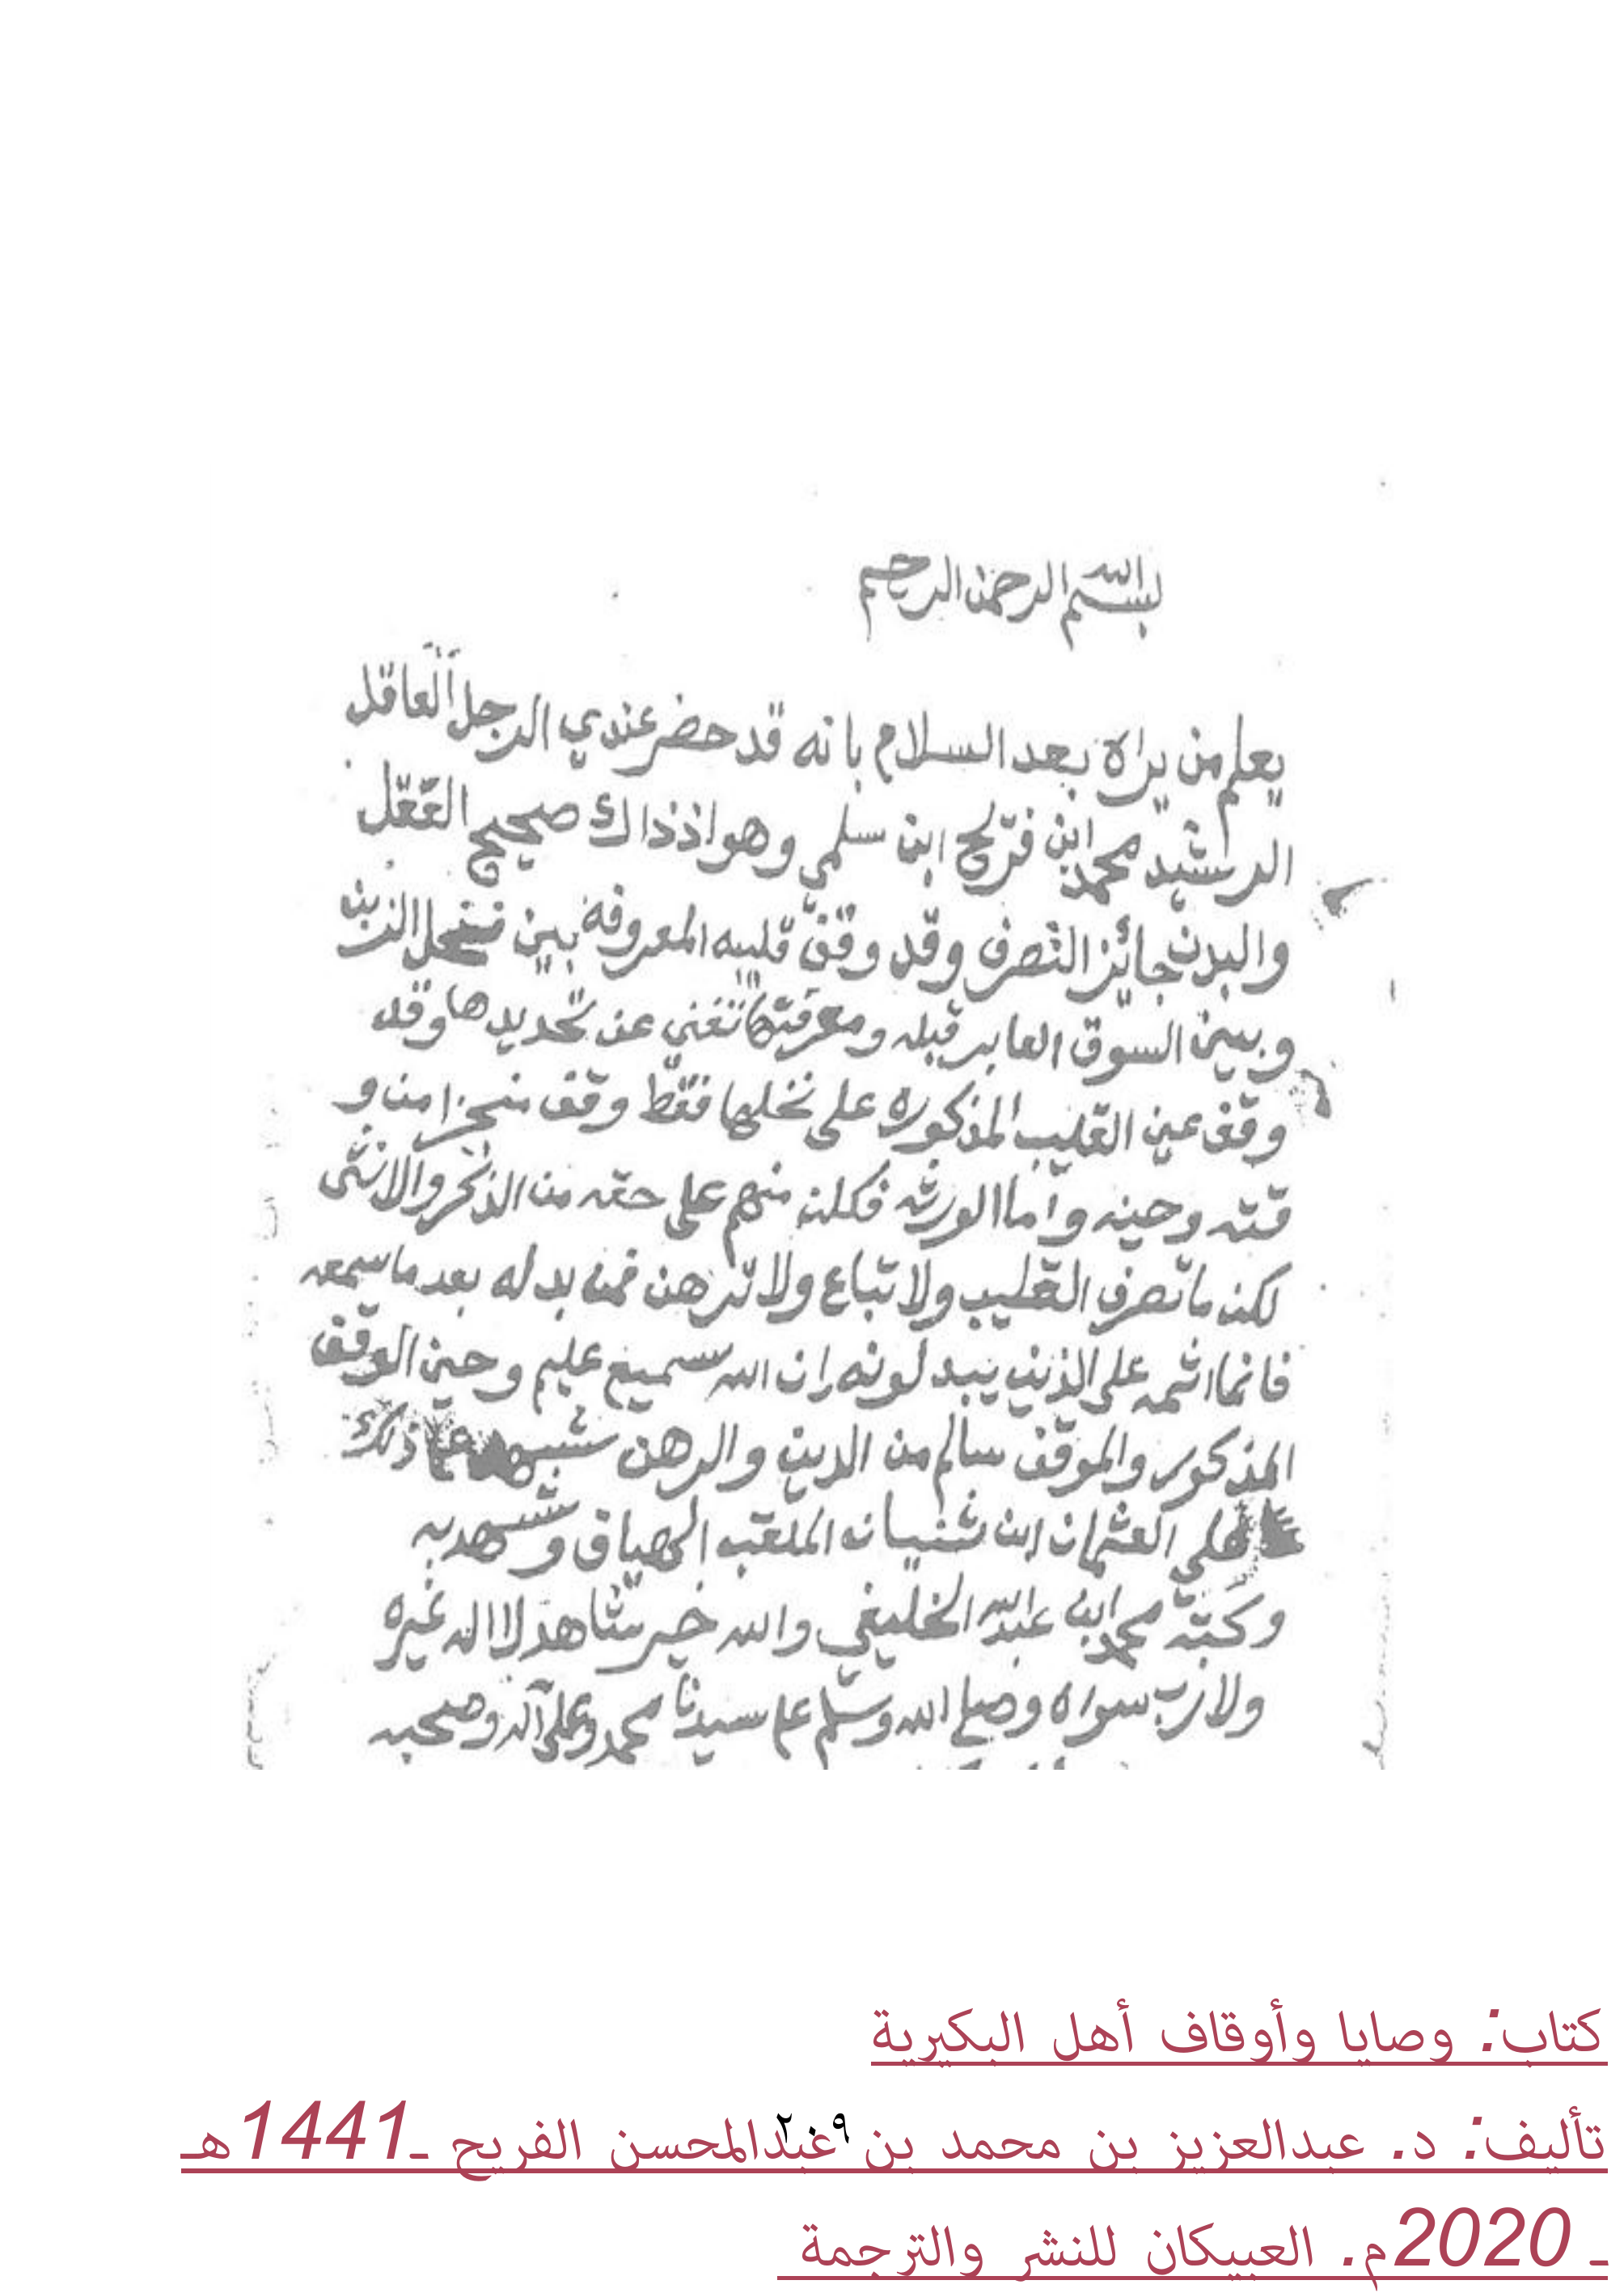 بسم الله الرحمن الرحيم
يعلم من يراه بعد السلام بانه قد حضر عندي الرجل العاقل
الرشيد محمد ابن فريح ابن سلمي وهو اذ ذاك صحيح العقل
والبدن جائز التصرف وقد وقف قليبه المعروفة بين نخل الزبن
وبين السوق العابر قبله ومعرفتها تغني عن تحديدها وقد
وقف عين القليب المذكوره على نخلها فقط وقف منجزا من و
قته وحينه واما الورثه فكلن منهم على حقه من الذكر والانثى
لكن ما تصرف القليب ولا تباع ولا ترهن فمن بدله بعد ما سمعه
فانما اثمه على الذين يبدلونه إن الله سميع عليم وحين الوقف
المذكور والموقف سالم من الدين والرهن شهد على ذلك
علي العثمان ابن شنيبان الملقب الهياق وشهد به
وكتبه محمد ابن عبد الله الخليفي والله خير شاهد لا اله غيره
ولا رب سواه وصلى الله وسلم على سيدنا محمد وعلى آله وصحبه
كتاب: وصايا وأوقاف أهل البكيرية
تأليف: د. عبدالعزيز بن محمد بن عبدالمحسن الفريح ـ1441هـ
٢٠٩
ـ 2020م. العبيكان للنشر والترجمة